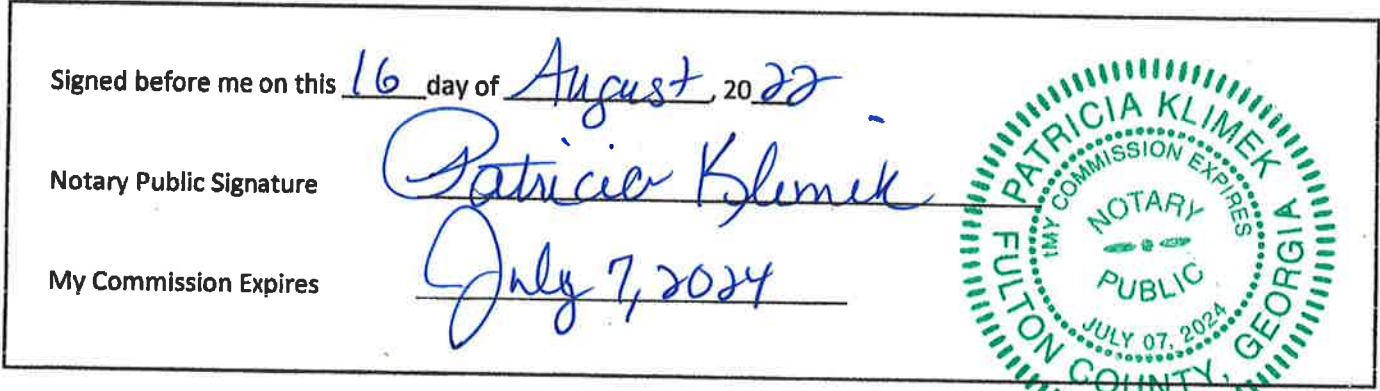 Signed before me on this 16 day of August, 2022
Notary Public Signature Patricia Klimek
My Commission Expires July 7, 2024
PATRICIA KLIMEK
MY COMMISSION EXPIRES
NOTARY
PUBLIC
JULY 07, 2024
FULTON COUNTY, GEORGIA